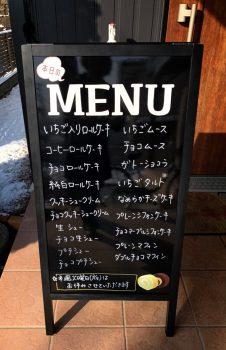 本日の
MENU
いちご入りロールケーキ
コーヒーロールケーキ
チョコロールケーキ
純白ロールケーキ
クッキーシュークリーム
チョコクッキーシュークリーム
生シュー
チョコ生シュー
プチシュー
チョコプチシュー
いちごムース
チョコムース
ガトーショコラ
いちごタルト
なめらかチーズケーキ
プレーンシフォンケーキ
チョコマーブルシフォンケーキ
プレーンマフィン
ダブルチョコマフィン
毎週火曜日(火)は
お休みさせていただきます